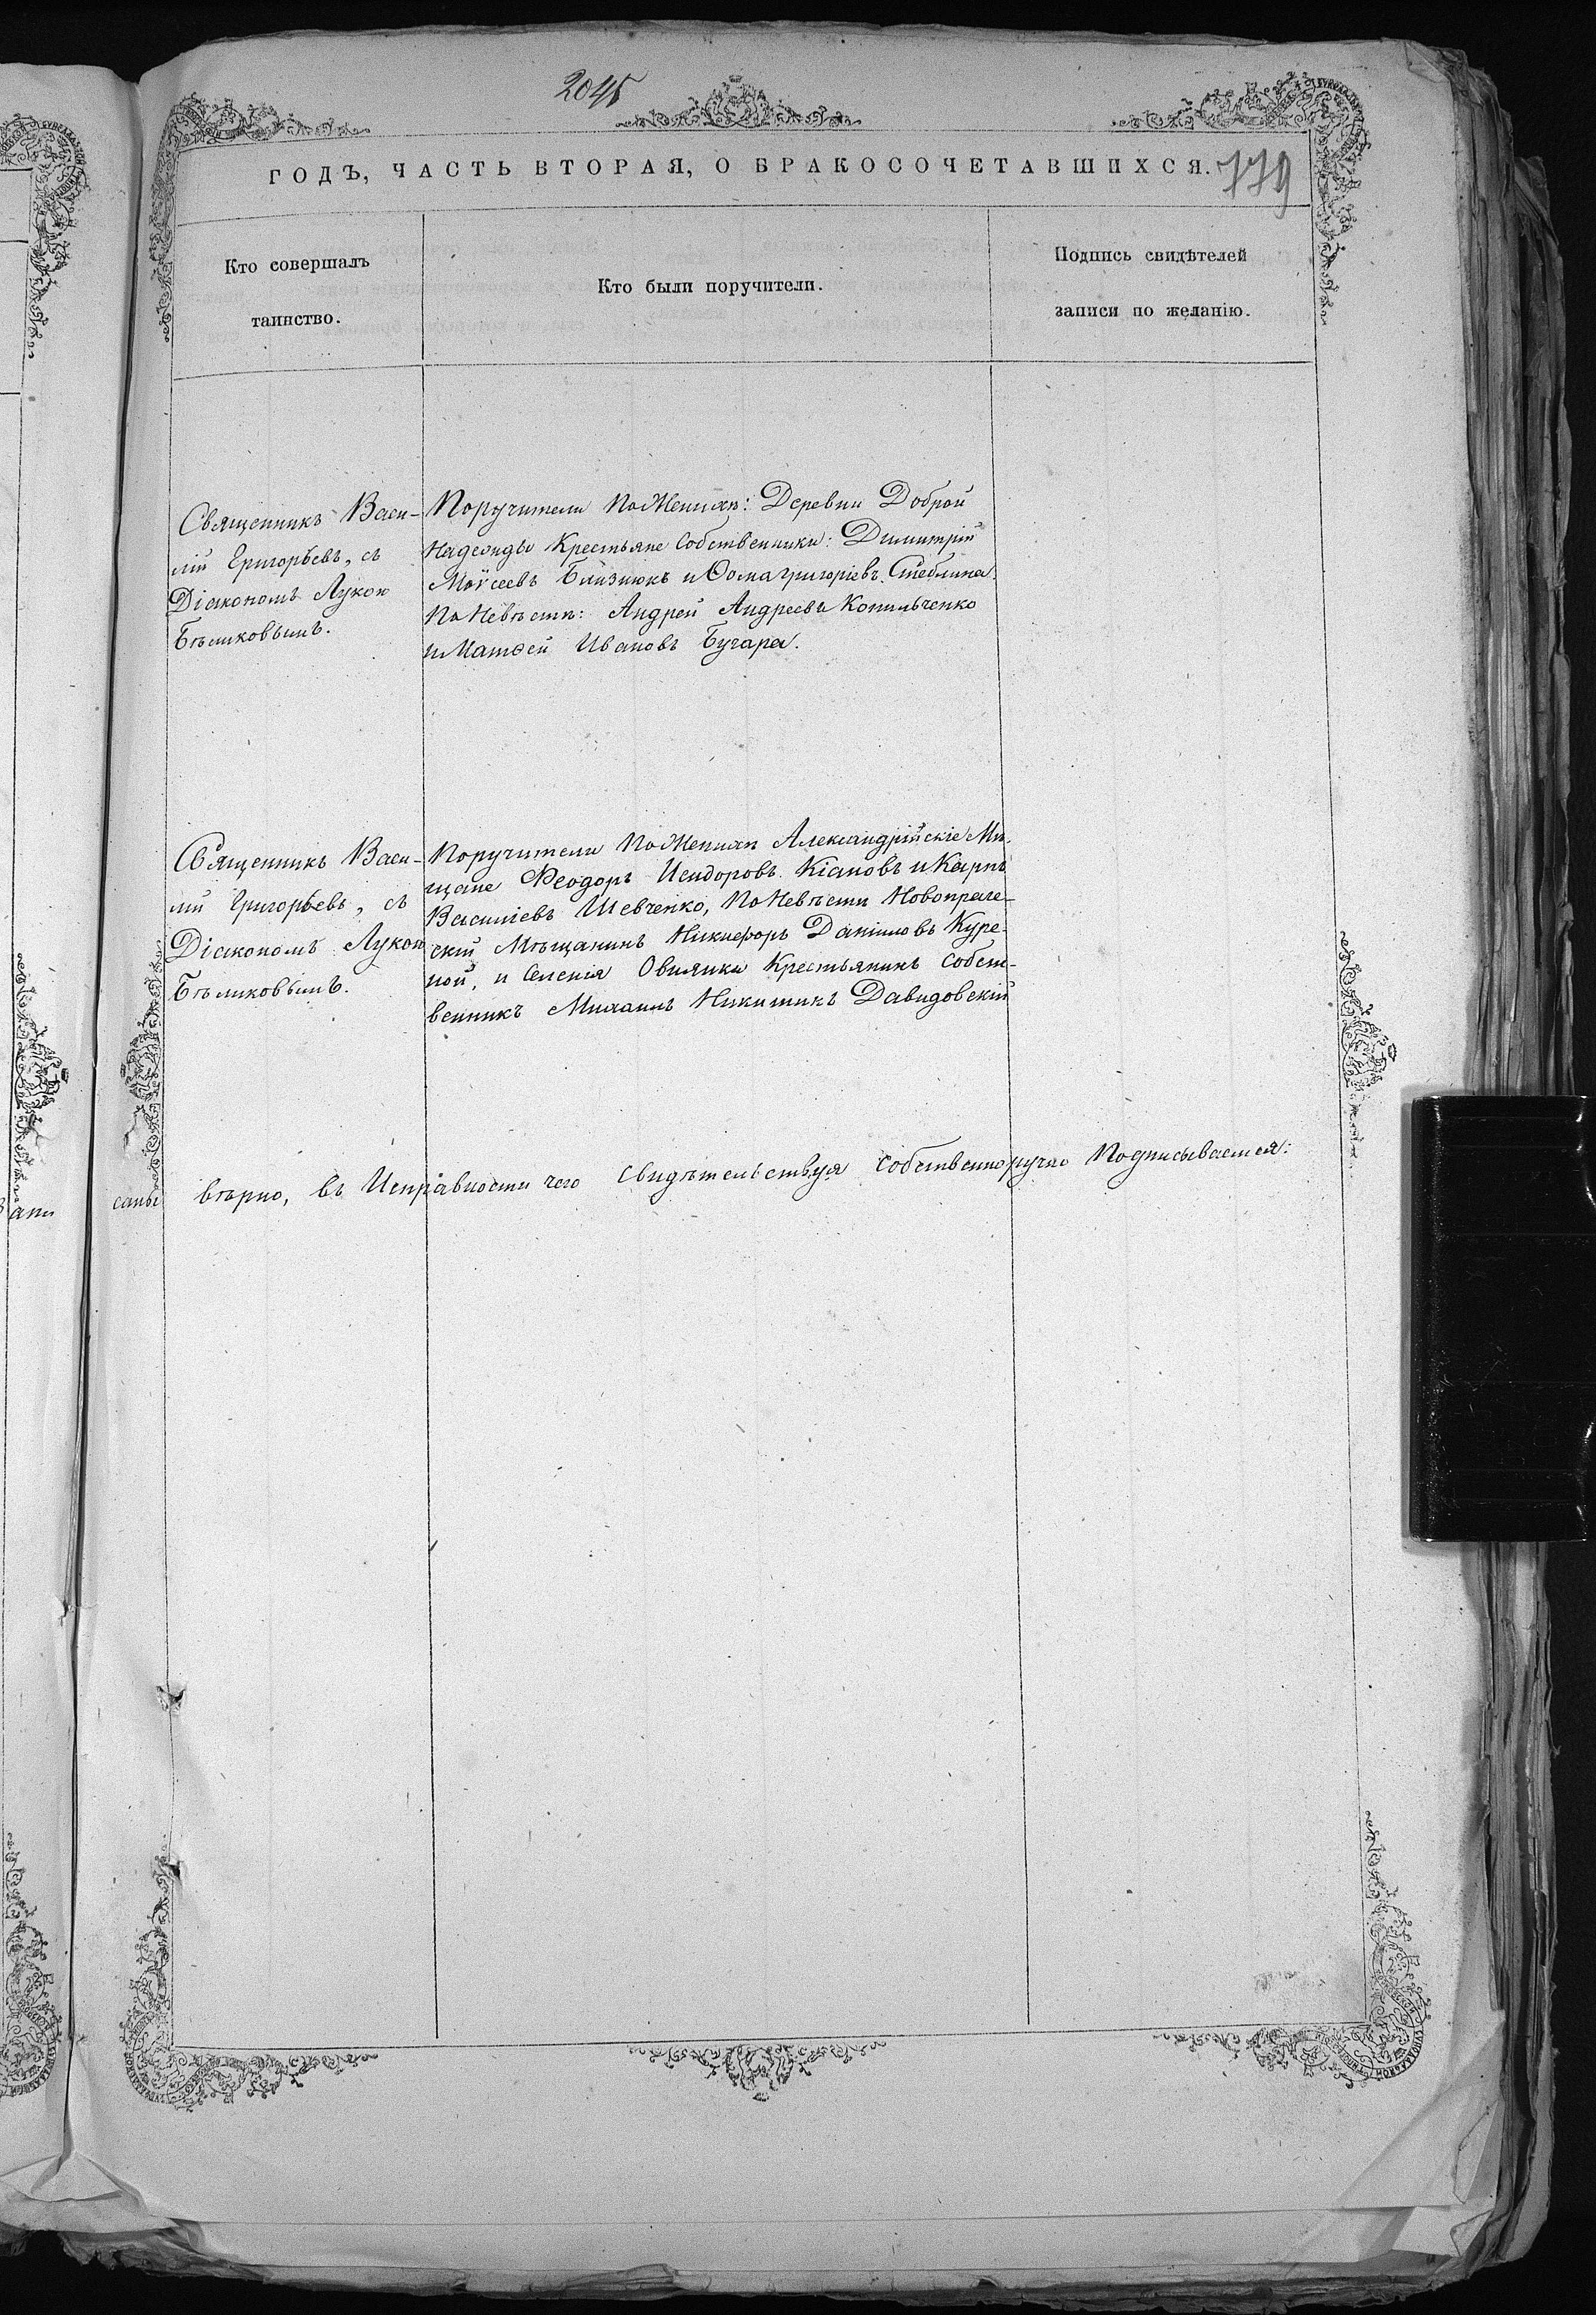 2045
ГОДЪ, ЧАСТЬ ВТОРАЯ, О БРАКОСОЧЕТАВШИХСЯ.
779
Кто совершалъ
таинство.
Кто были поручители.
Подпись свидѣтелей
записи по желанію.
Священникъ Васи-
лій Григорьевъ, съ
Діакономъ Лукою
Бѣликовымъ.
Поручители По Женихѣ: Деревни Доброй
Надежды Крестьяне Собственники: Димитрій
Моѵсеевъ Близнюкъ и Ѳома Григоріевъ Стеблина.
По Невѣстѣ: Андрей Андреевъ Копильченко
и Матѳей Ивановъ Бугара.
Священникъ Васи-
лій Григорьевъ, съ
Діакономъ Лукою
Бѣликовымъ.
Поручители По Женихѣ Александрійскіе Мѣ-
щане Ѳеодоръ Исидоровъ Кіановъ и Карпъ
Василіевъ Шевченко, По Невѣсти Новопраге-
скій Мѣщанинъ Никифоръ Даніиловъ Куре-
ной, и Селенія Овнянки Крестьянинъ Собст-
венникъ Михаилъ Никитинъ Давидовскій
саны вѣрно, въ Исправности чего Свидѣтельствуя Собственноручно Подписываемся: